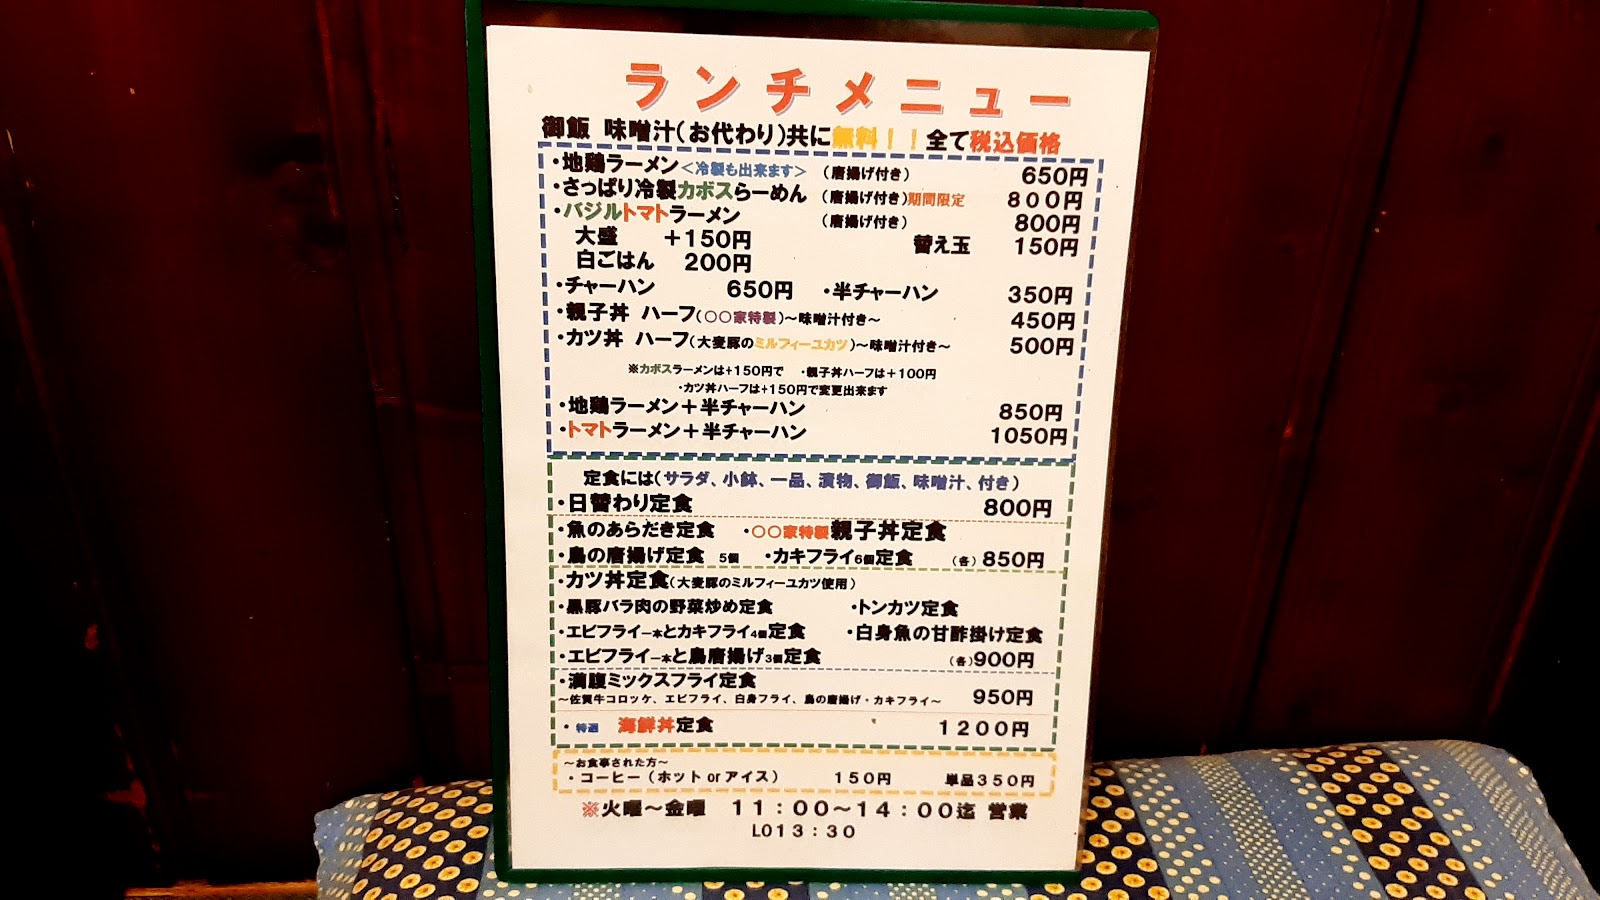 ランチメニュー
御飯 味噌汁(お代わり)共に無料！！全て税込価格
・地鶏ラーメン<冷製も出来ます> (唐揚げ付き) 650円
・さっぱり冷製カボスらーめん (唐揚げ付き)期間限定 800円
・バジルトマトラーメン (唐揚げ付き) 800円
大盛 +150円 替え玉 150円
白ごはん 200円
・チャーハン 650円 ・半チャーハン 350円
・親子丼 ハーフ(〇〇家特製)～味噌汁付き～ 450円
・カツ丼 ハーフ(大麦豚のミルフィーユカツ)～味噌汁付き～ 500円
※カボスラーメンは+150円で ・親子丼ハーフは+100円
・カツ丼ハーフは+150円で変更出来ます
・地鶏ラーメン+半チャーハン 850円
・トマトラーメン+半チャーハン 1050円
定食には(サラダ、小鉢、一品、漬物、御飯、味噌汁、付き)
・日替わり定食 800円
・魚のあらだき定食 ・〇〇家特製親子丼定食
・鳥の唐揚げ定食 5個 ・カキフライ6個定食 (各)850円
・カツ丼定食(大麦豚のミルフィーユカツ使用)
・黒豚バラ肉の野菜炒め定食 ・トンカツ定食
・エビフライ一本とカキフライ4個定食 ・白身魚の甘酢掛け定食
・エビフライ一本と鳥唐揚げ3個定食 (各)900円
・満腹ミックスフライ定食 950円
～佐賀牛コロッケ、エビフライ、白身フライ、鳥の唐揚げ・カキフライ～
・特選 海鮮丼定食 1200円
～お食事された方～
・コーヒー(ホット or アイス) 150円 単品350円
※火曜～金曜 11：00～14：00迄 営業
LO13：30